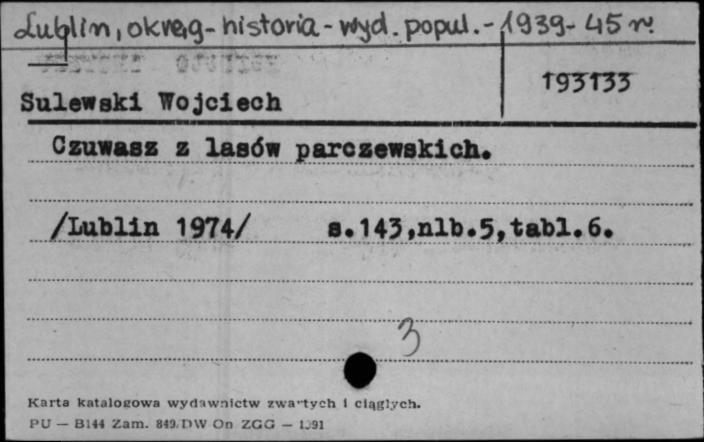 Lublin, okręg - historia - wyd. popul. - 1939-45 r.
193133
Sulewski Wojciech
Czuwasz z lasów parczewskich.
/Lublin 1974/ s.143,nlb.5,tabl.6.
3
Karta katalogowa wydawnictw zwartych i ciągłych.
PU — B144 Zam. 849. DW On ZGG — 1391